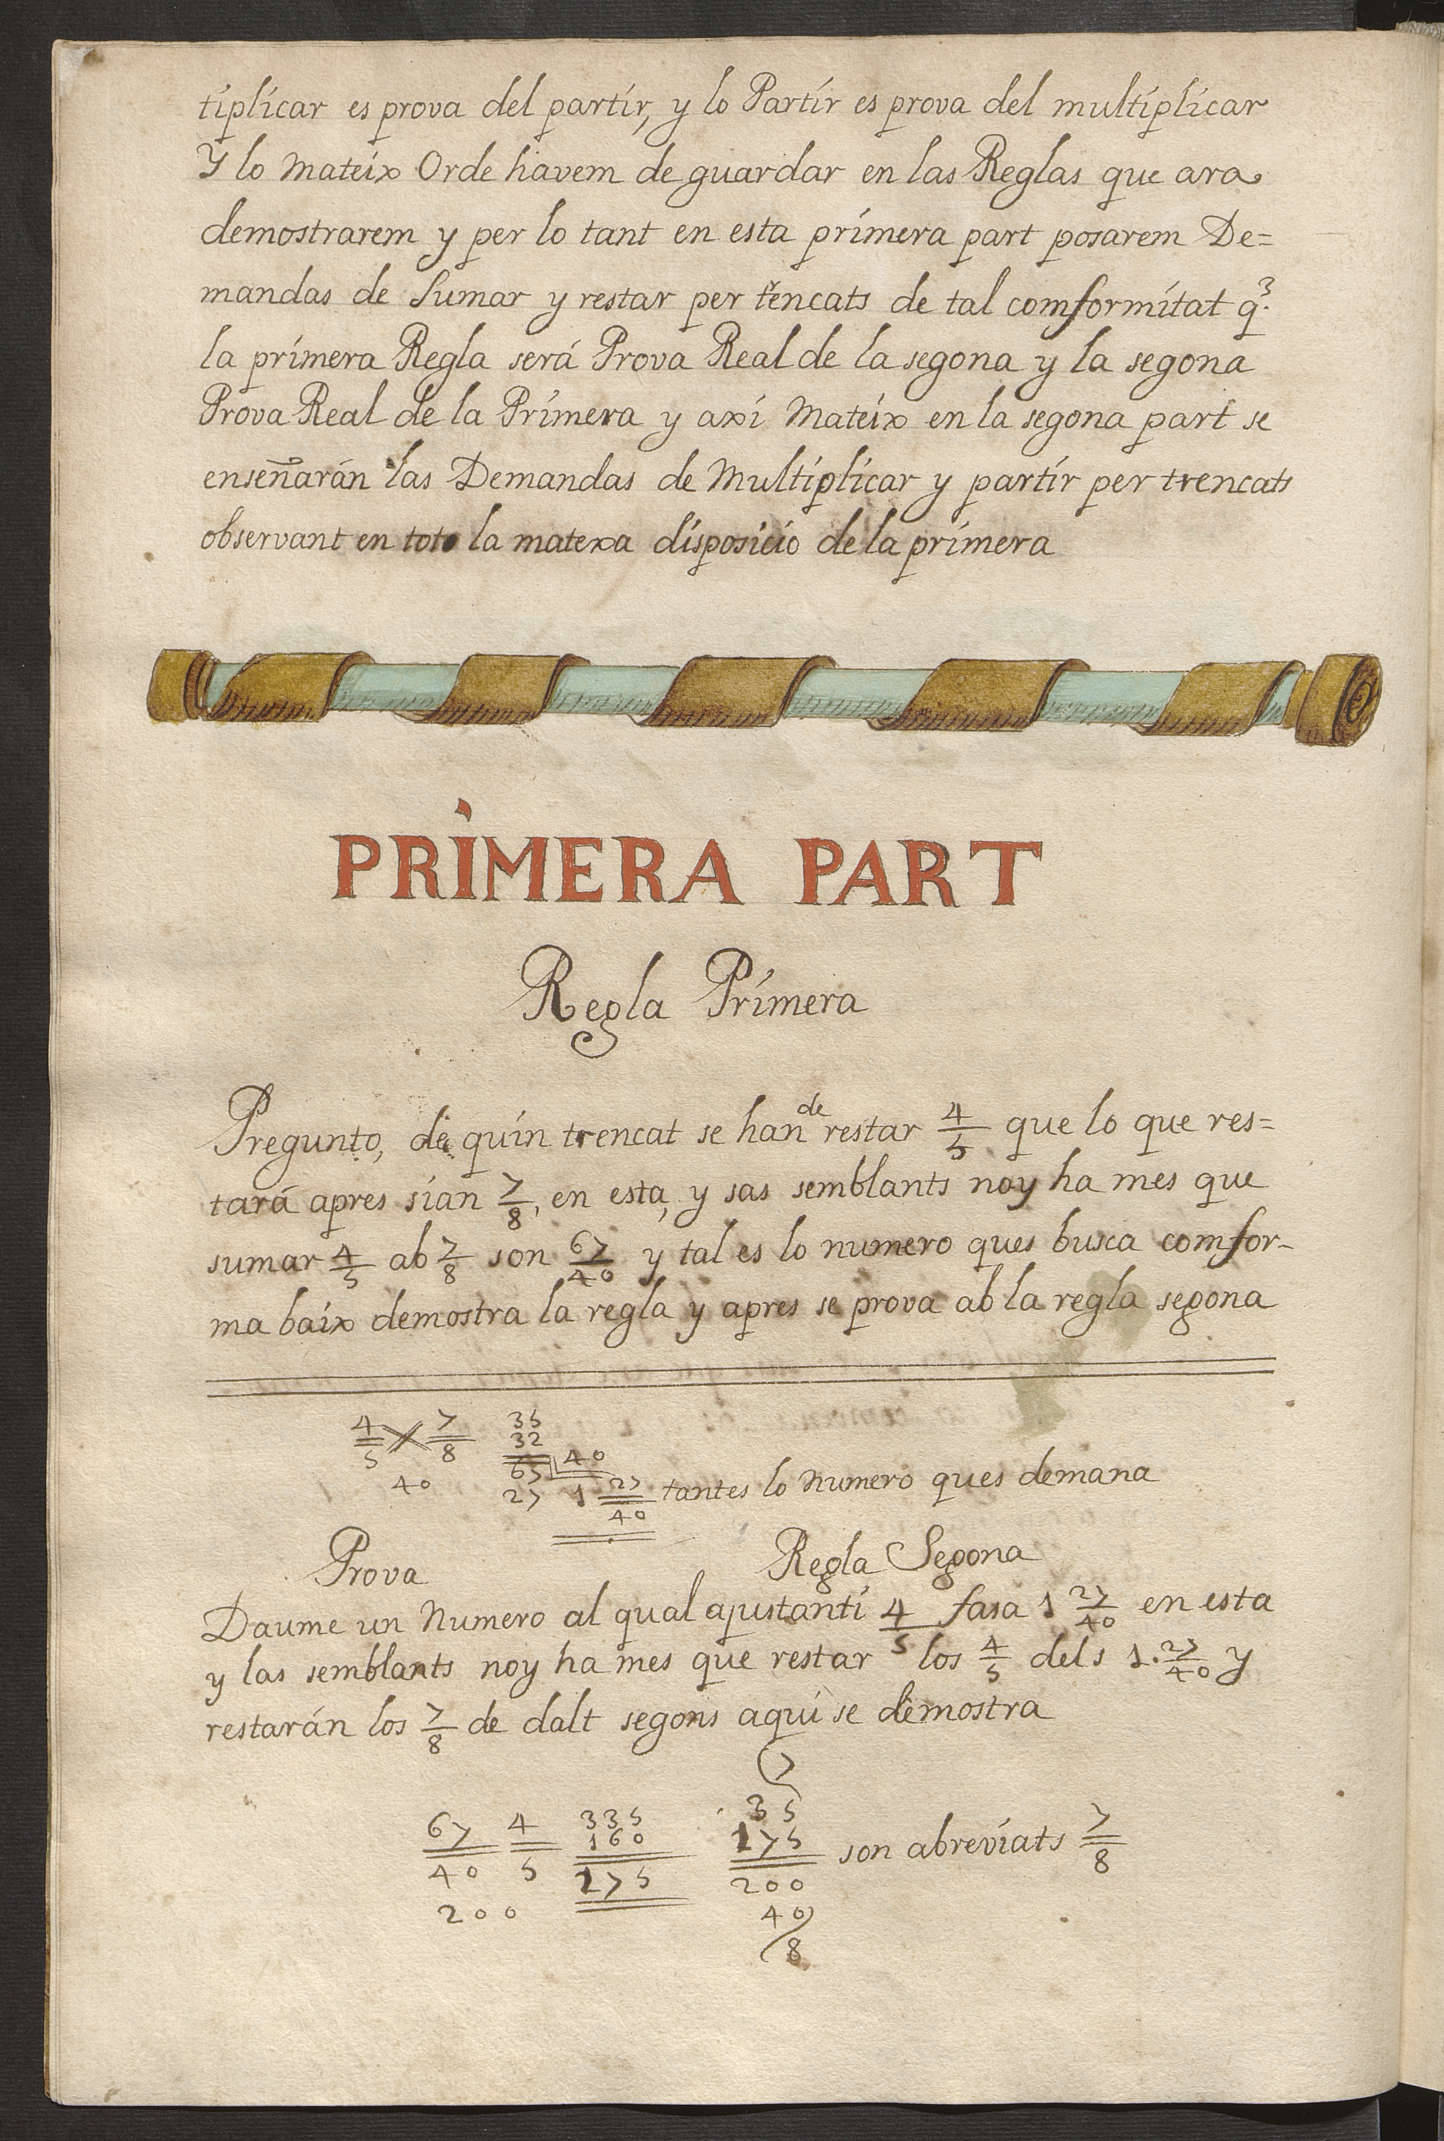 tiplicar es prova del partir, y lo Partir es prova del multiplicar
Y lo Mateix Orde havem de guardar en las Reglas que ara
demostrarem y per lo tant en esta primera part posarem De=
mandas de Sumar y restar per trencats de tal comformitat q.e
la primera Regla será Prova Real de la segona y la segona
Prova Real de la Primera y axi Mateix en la segona part se
enseñarán las Demandas de Multiplicar y partir per trencats
observant en tot la matexa disposicio de la primera
PRIMERA PART
Regla Primera
Pregunto, de quin trencat se han de restar 4/5 que lo que res=
tará apres sian 7/8, en esta, y sas semblants noy ha mes que
sumar 4/5 ab 7/8 son 67/40 y tal es lo numero ques busca comfor-
ma baix demostra la regla y apres se prova ab la regla segona
4/5 7/8 35
32
40 67 40
27 1 27/40 tantes lo Numero ques demana
Prova Regla Segona
Daume un Numero al qual ajustanti 4/5 fasa 1 27/40 en esta
y las semblants noy ha mes que restar los 4/5 dels 1. 27/40 y
restarán los 7/8 de dalt segons aqui se demostra
7
35
67/40 4/5 335
160 175/200 son abreviats 7/8
175
200 40
8